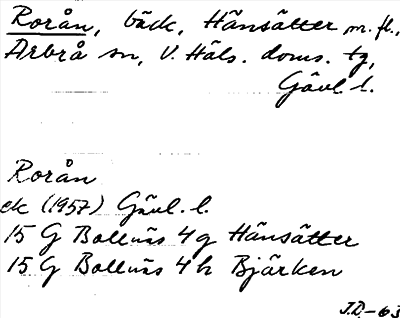 Rorån, bäck, Hänsätter m. fl.,
Arbrå sn, V. Häls. doms. tg,
Gävl. l.
Rorån
ek (1957) Gävl. l.
15 G Bollnäs 4 g Hänsätter
15 G Bollnäs 4 h Bjärken
J.D.-63